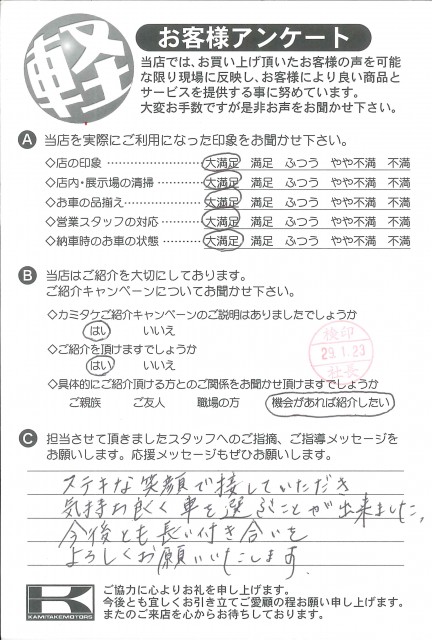 軽
お客様アンケート
当店では、お買い上げ頂いたお客様の声を可能
な限り現場に反映し、お客様により良い商品と
サービスを提供する事に努めています。
大変お手数ですが是非お声をお聞かせ下さい。
A 当店を実際にご利用になった印象をお聞かせ下さい。
◇店の印象 ………………… 大満足 満足 ふつう やや不満 不満
◇店内・展示場の清掃………… 大満足 満足 ふつう やや不満 不満
◇お車の品揃え……………… 大満足 満足 ふつう やや不満 不満
◇営業スタッフの対応………… 大満足 満足 ふつう やや不満 不満
◇納車時のお車の状態………… 大満足 満足 ふつう やや不満 不満
B 当店はご紹介を大切にしております。
ご紹介キャンペーンについてお聞かせ下さい。
◇カミタケご紹介キャンペーンのご説明はありましたでしょうか
はい いいえ
◇ご紹介を頂けますでしょうか
はい いいえ
◇具体的にご紹介頂ける方とのご関係をお聞かせ頂けますでしょうか
ご親族 ご友人 職場の方 機会があれば紹介したい
検印
29.1.23
社長
C 担当させて頂きましたスタッフへのご指摘、ご指導メッセージを
お願いします。応援メッセージもぜひお願いします。
ステキな笑顔で接していただき
気持ち良く車を選ぶことが出来ました。
今後とも長い付き合いを
よろしくお願いいたします.
KAMITAKEMOTORS
ご協力に心よりお礼を申し上げます。
今後とも宜しくお引き立てご愛顧の程お願い申し上げます。
またのご来店を心からお待ちしております。